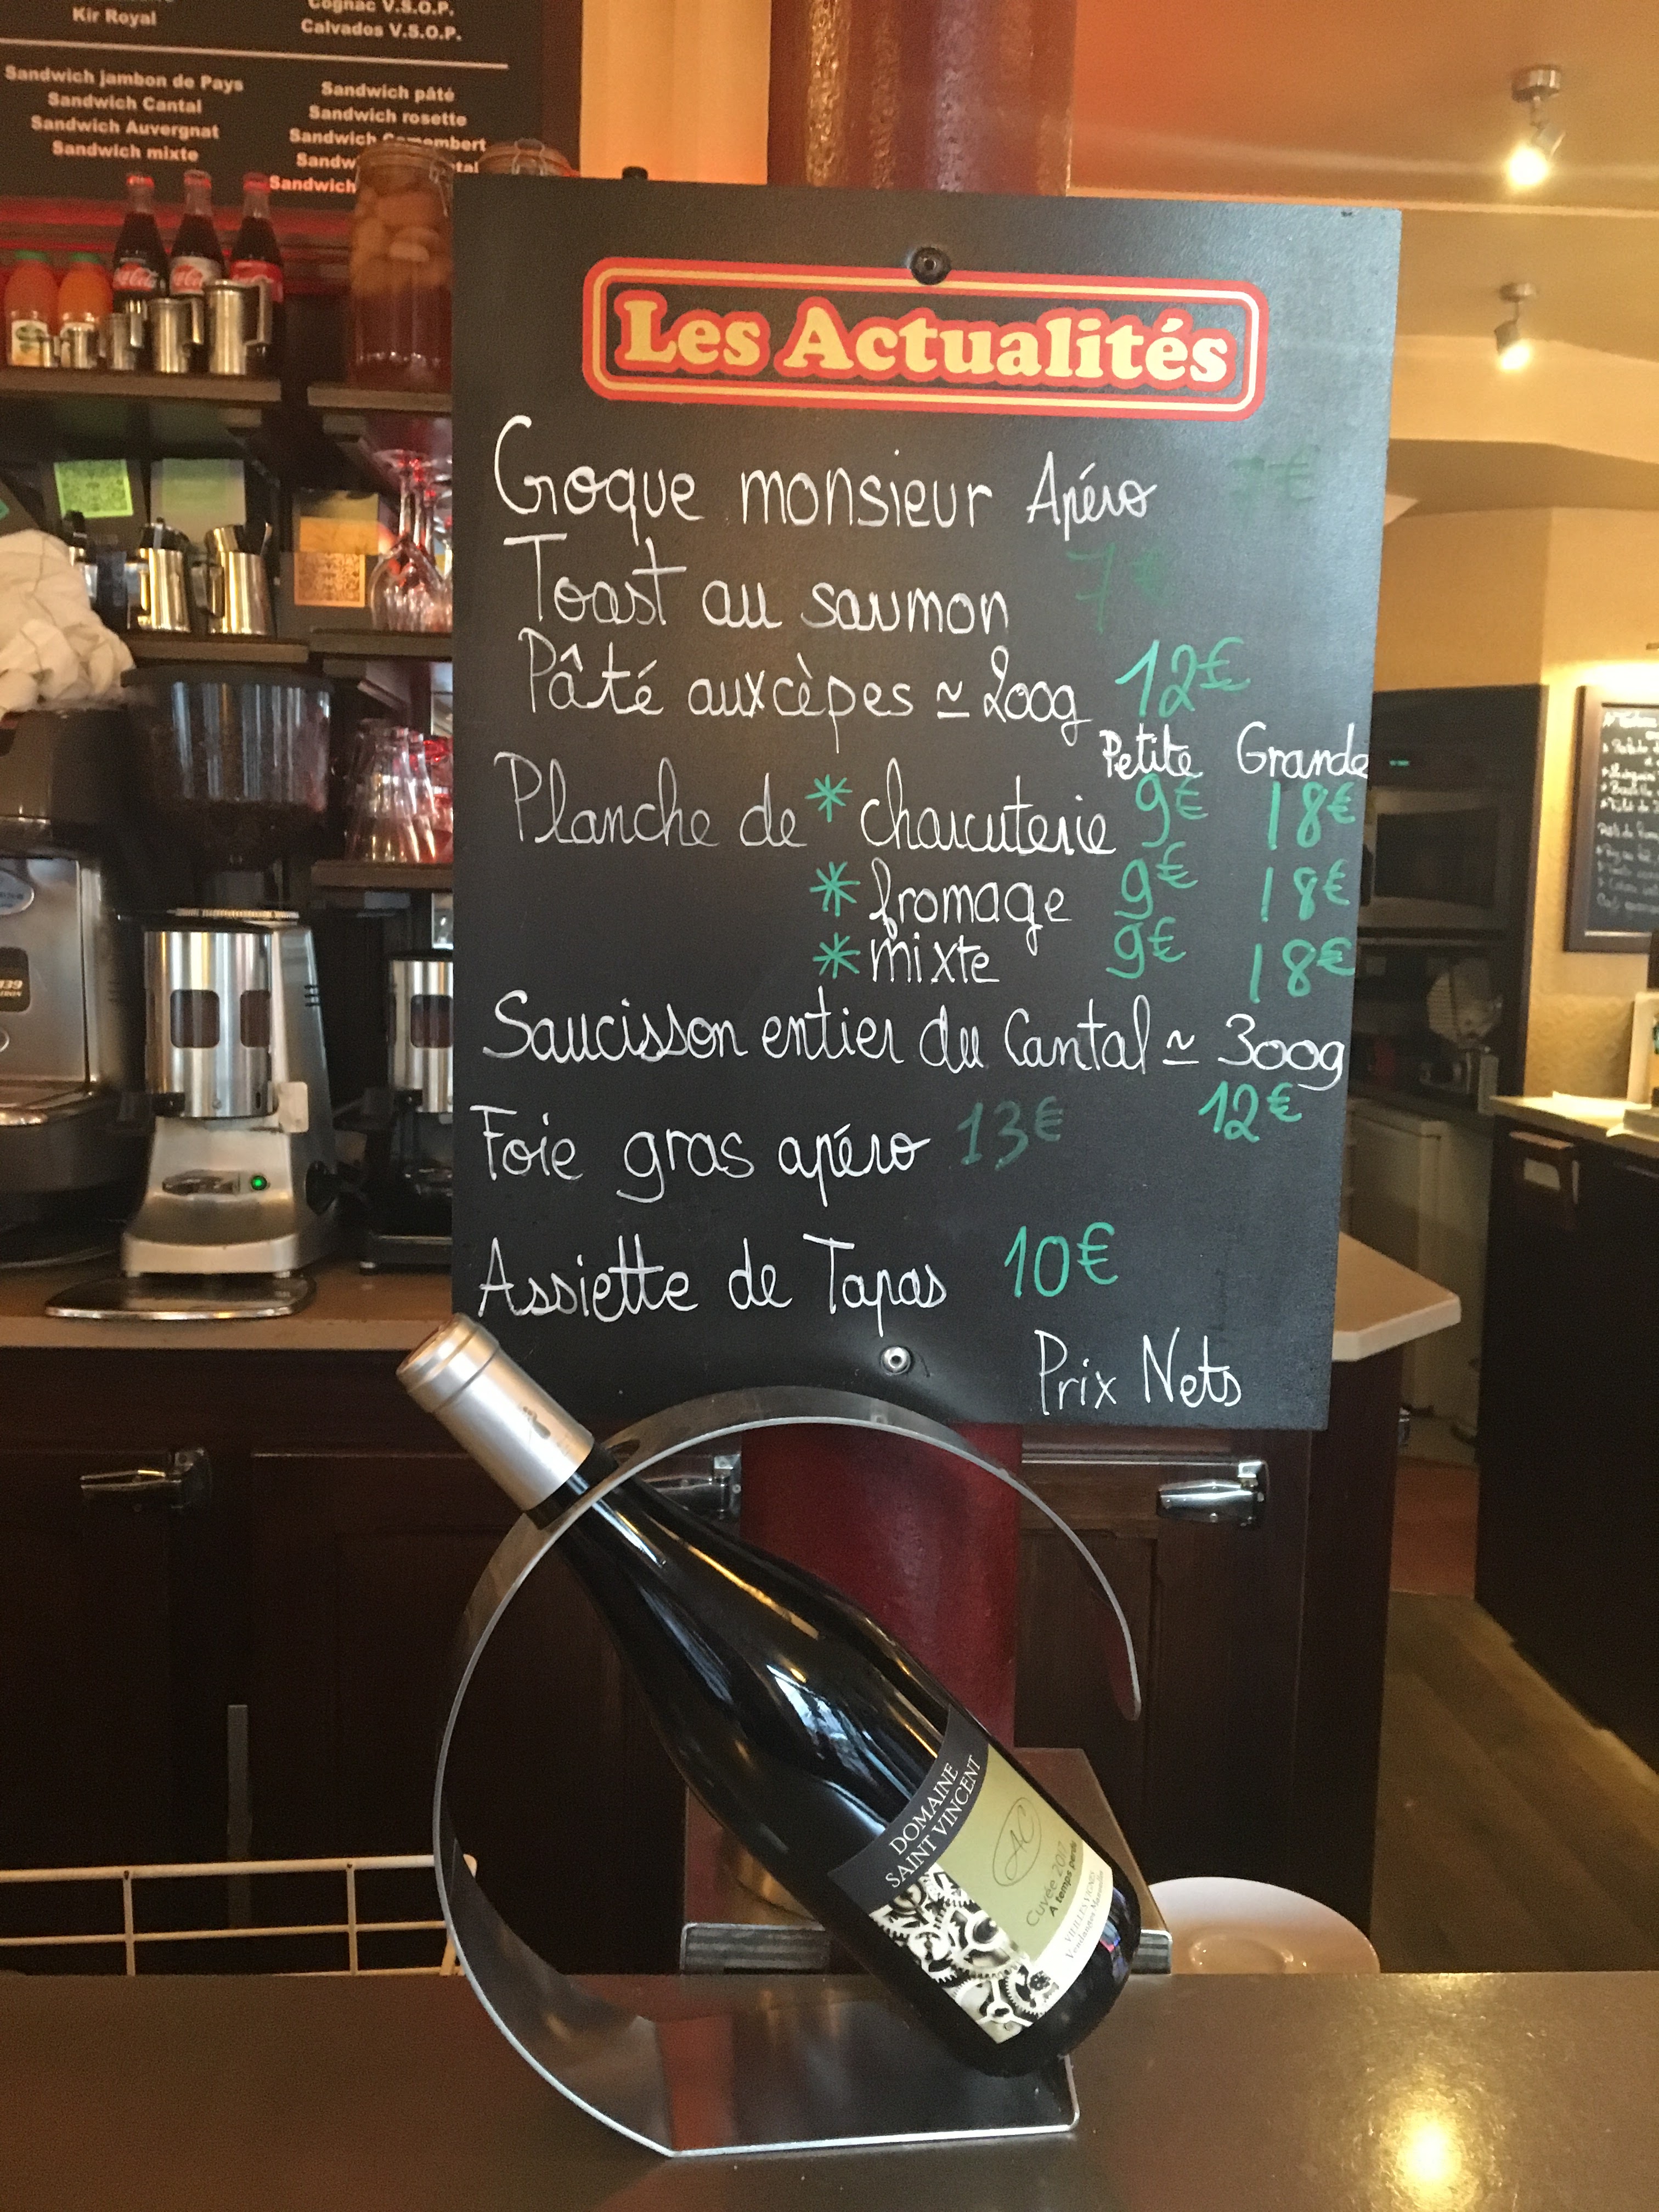 Kir Royal
Cognac V.S.O.P.
Calvados V.S.O.P.
Sandwich jambon de Pays
Sandwich Cantal
Sandwich Auvergnat
Sandwich mixte
Sandwich pâté
Sandwich rosette
Sandwich
Sandwich
Les Actualités
Croque monsieur Apéro 7€
Toast au saumon 7€
Pâté aux cèpes ≃ 200g 12€
Petite Grande
Planche de * charcuterie 9€ 18€
* fromage 9€ 18€
* mixte 9€ 18€
Saucisson entier du Cantal ≃ 300g
12€
Foie gras apéro 13€
Assiette de Tapas 10€
Prix Nets
DOMAINE
SAINT VINCENT
AC
Cuvée
A temps perdu
VIEILLES VIGNES